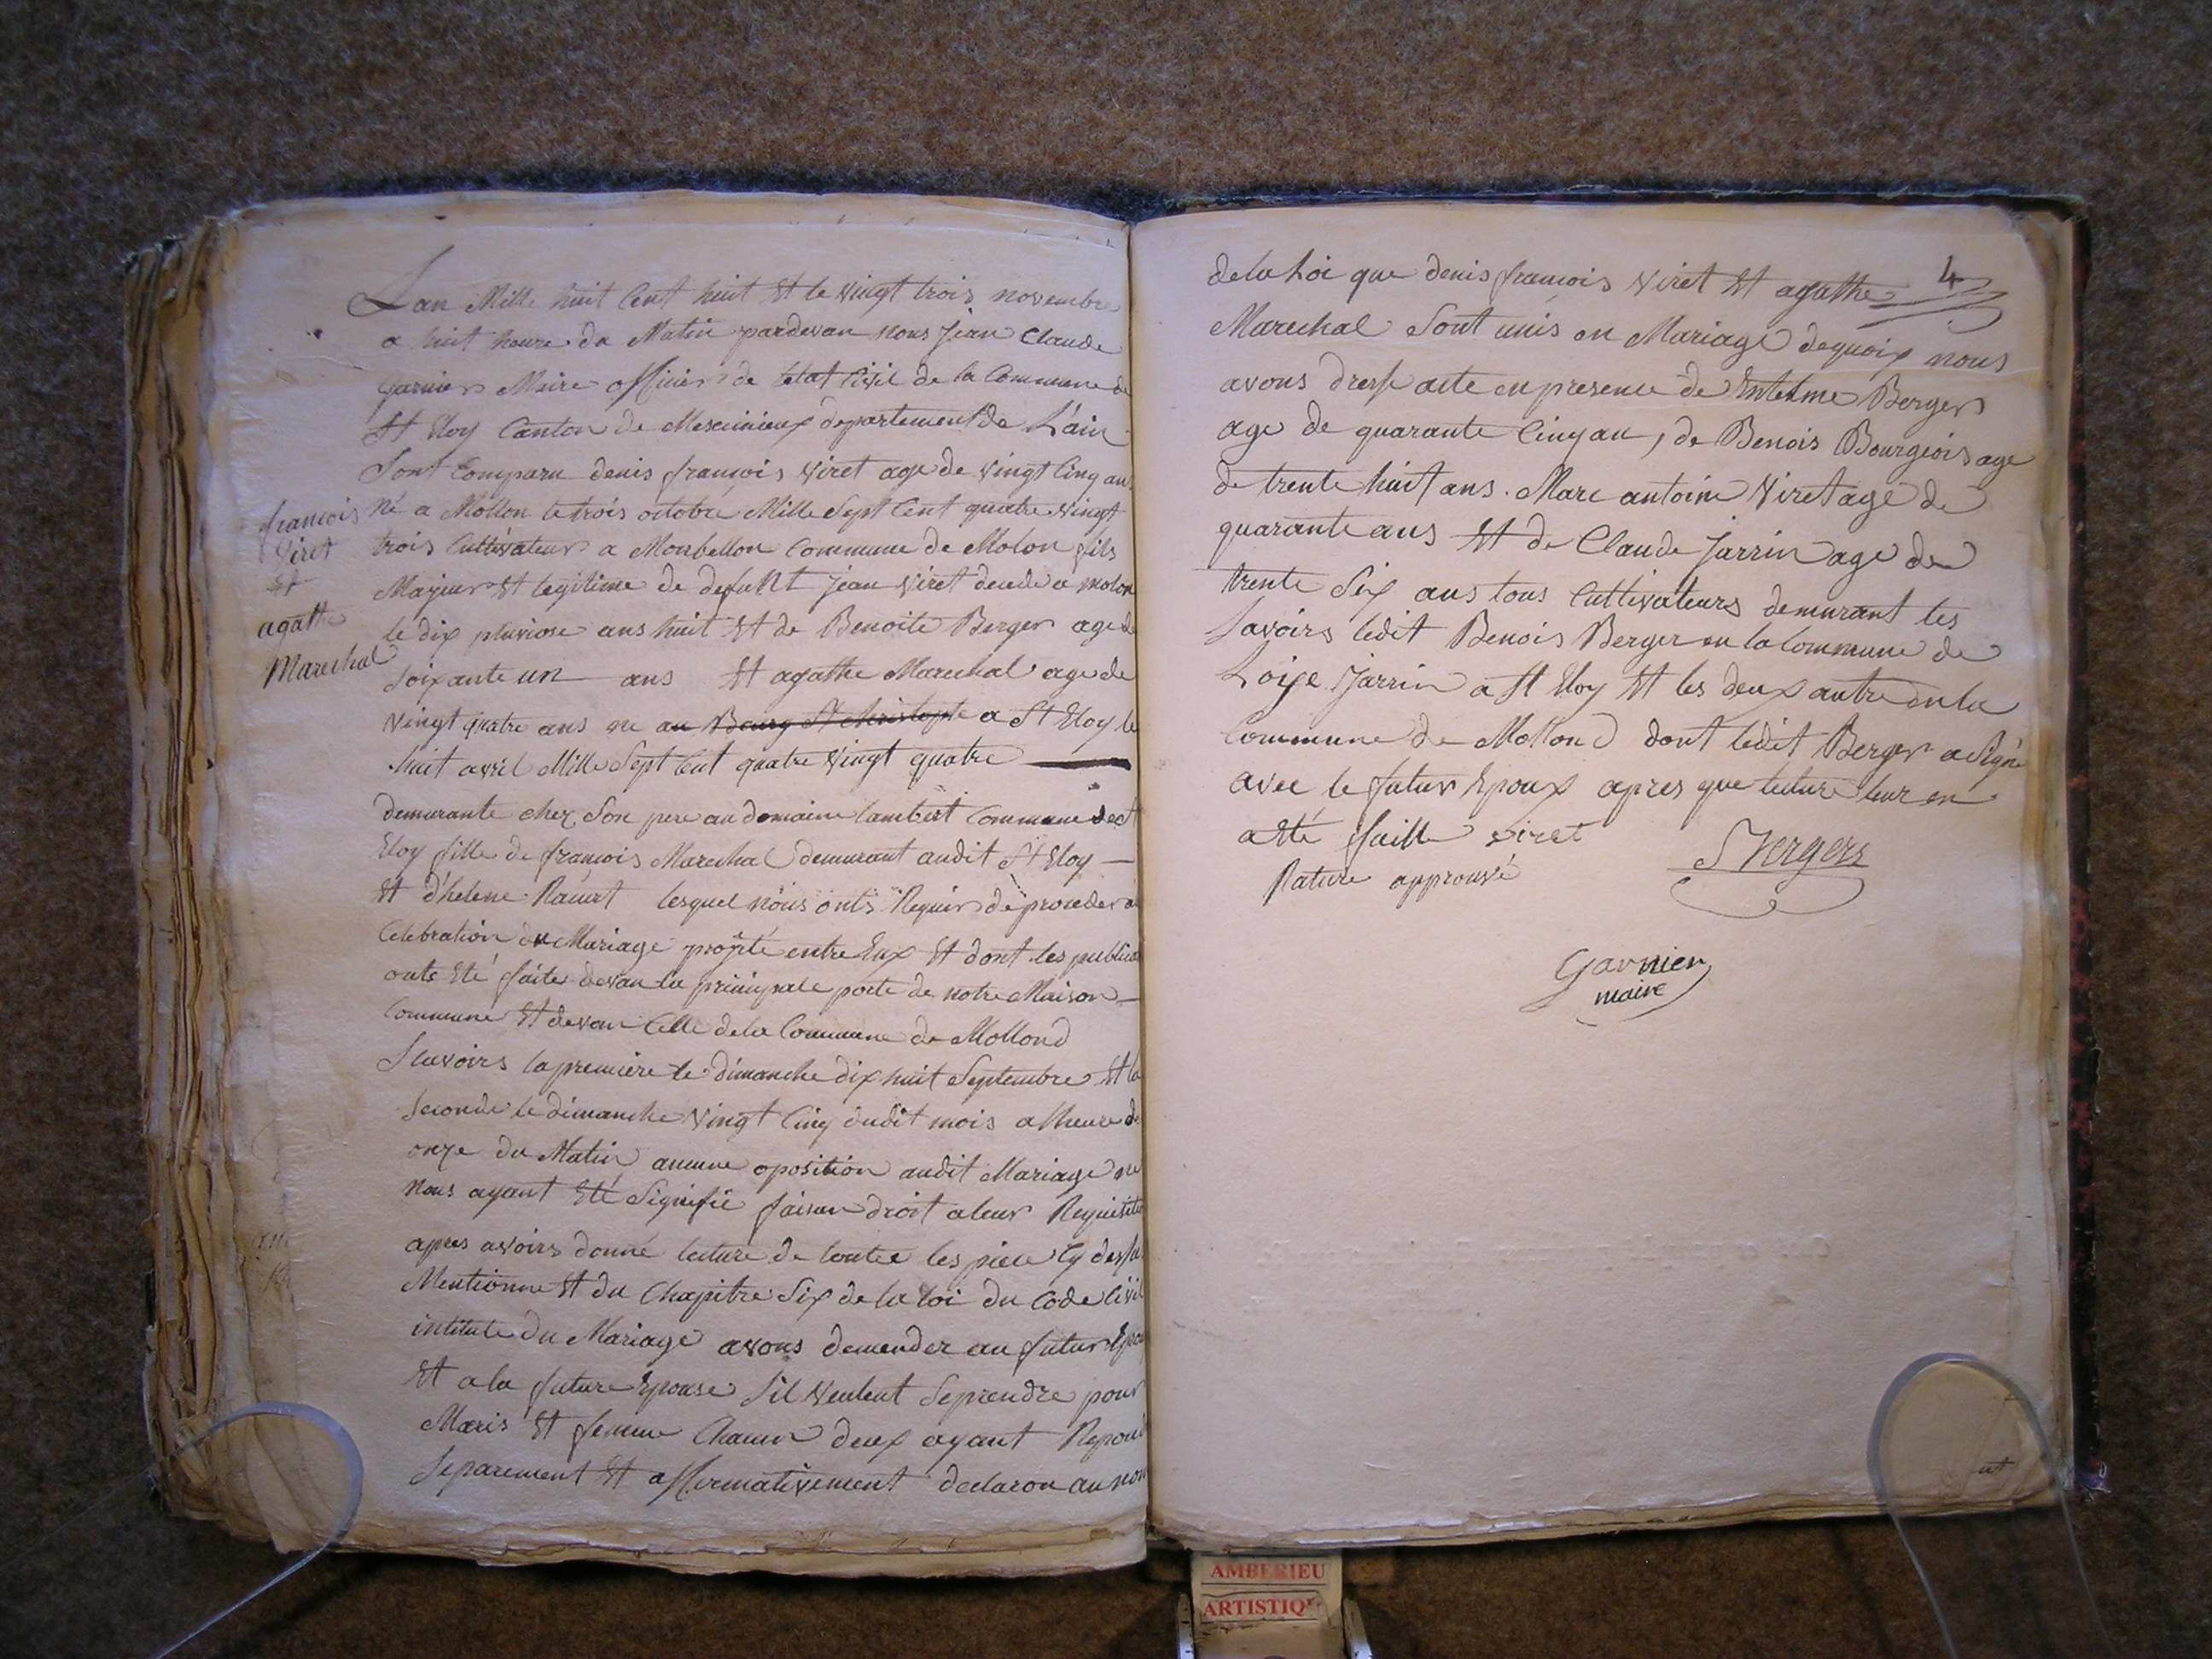 Lan Mille huit Cent huit Et le vingt trois novembre
a huit heure du Matin pardevan nous Jean Claude
garnier Maire officier de letat Civil de la Commune de
St Eloy Canton de Meximieux departement de L'ain
Sont Comparu denis françois viret age de vingt Cinq ans
Né a Mollon le trois octobre Mille Sept Cent quatre vingt
trois Cultivateur a Monbellon Commune de Molon fils
Majeur Et legitime de defunt jean viret decede a molon
le dix pluviose ans huit Et de Benoite Berger age de
Soixante un ans Et agathe Marechal age de
vingt quatre ans ne au Bourg St christophe a St Eloy le
huit avril Mille Sept Cent quatre vingt quatre
demurante chez Son pere au domaine lambert Commune de St
Eloy fille de françois Marechal demurant audit St Eloy
Et d'helene lesquel nous onts Requir de proceder a
Celebration du Mariage projté entre Eux Et dont les public
onts Eté faite devan la principale porte de notre Maison
Commune Et devan Celle de la Commune de Mollond
Savoirs la premiere le dimanche dix huit Septembre Et la
Seconde le dimanche vingt Cinq dudit mois a lheure de
onze du Matin aucune oposition audit Mariage ne
nous ayant Eté Signifié faisan droit a leur Requisitio
apres avoirs donné lecture de toutee les piece Cy dessu
Mentionne Et du Chapitre Six de la loi du Code Civil
intitule du Mariage avons demender au futur Epou
Et a la future Epouse Sil veulent Seprendre pour
Maris Et femme Chacun deux ayant Repond
Separement Et affirmativement declaron au nom
françois
viret
Et
agathe
Marechal
4
de la Loi que denis françois viret Et agathe
Marechal Sont unis en Mariage dequoix nous
avons dresse acte en presence de Entelme Berger
age de quarante Cinq an, de Benois Bourgeois age
de trente huit ans. Marc antoine viret agé de
quarante ans Et de Claude Jarrin age de
trente Six ans tous Cultivateurs demurant les
Savoirs ledit Benois Berger en la Commune de
Loye Jarrin a St Eloy Et les deux autre en la
Commune de Mollond dont ledit Berger a Signé
avec le futur Epoux apres que lecture leur en
a Eté faitte viret
Rature approuvé
Garnier
maire
AMBERIEU
ARTISTIQ